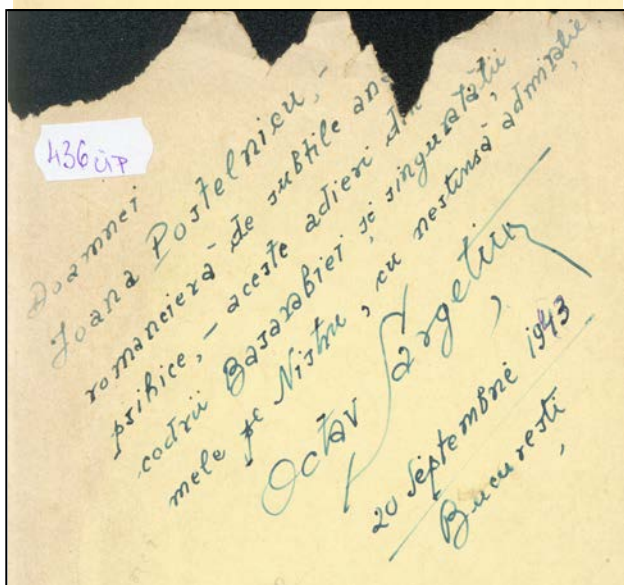 436 ÜP
Doamnei
Ioana Postelnicu, -
romancieră de subtile ana
psihice, - aceste adieri din
codrii Basarabiei și singurătății
mele pe Nistru, cu nestinsă admirație,
Octav Sargețiu,
20 Septembrie 1943
București